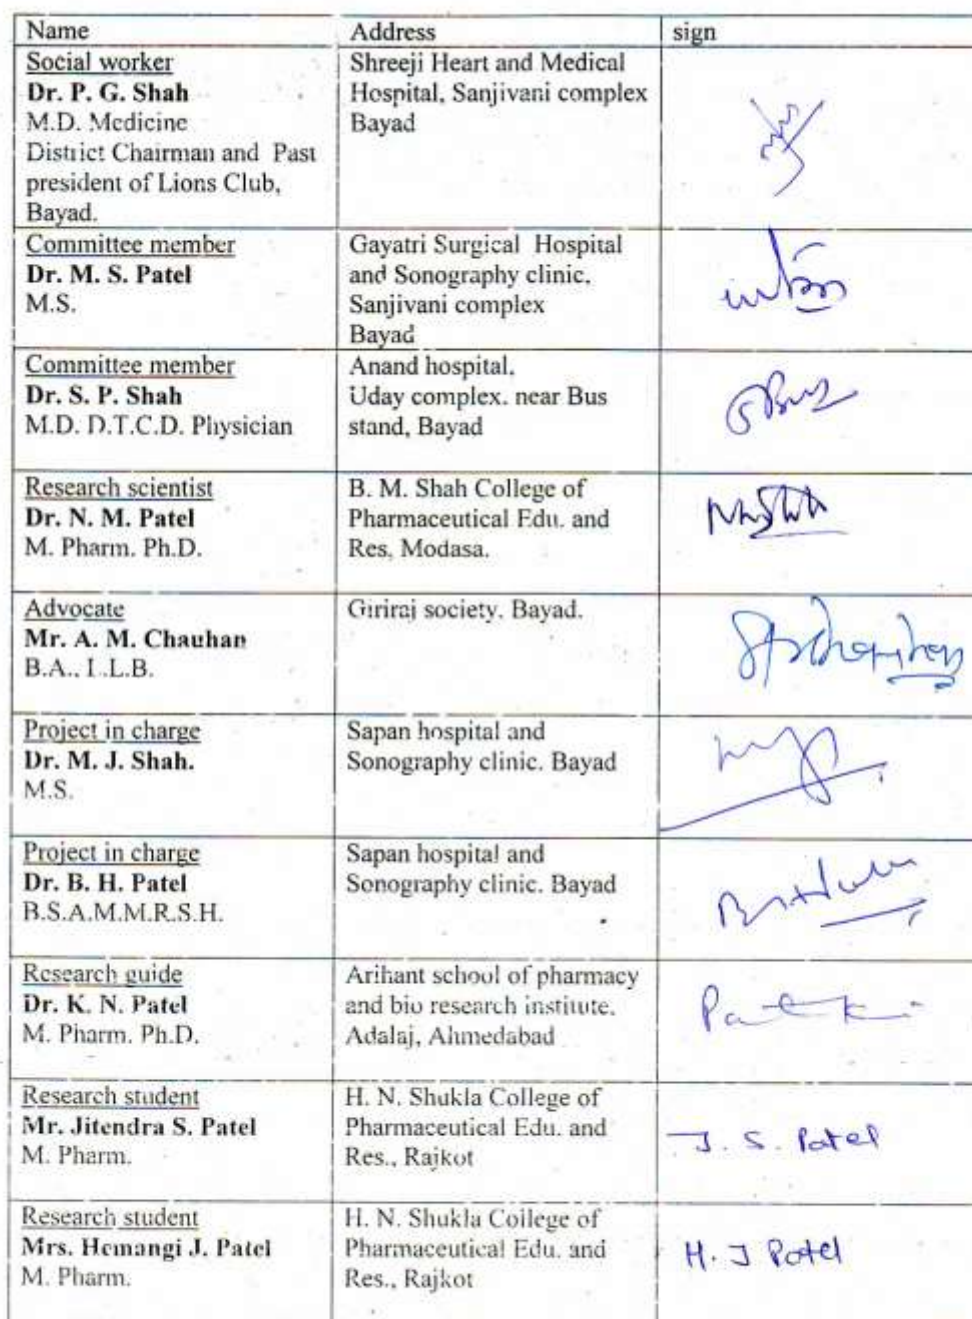 Name Address sign
Social worker
Dr. P. G. Shah
M.D. Medicine
District Chairman and Past
president of Lions Club,
Bayad.
Shreeji Heart and Medical
Hospital, Sanjivani complex
Bayad
Committee member
Dr. M. S. Patel
M.S.
Gayatri Surgical Hospital
and Sonography clinic,
Sanjivani complex
Bayad
Committee member
Dr. S. P. Shah
M.D. D.T.C.D. Physician
Anand hospital,
Uday complex. near Bus
stand, Bayad
Research scientist
Dr. N. M. Patel
M. Pharm. Ph.D.
B. M. Shah College of
Pharmaceutical Edu. and
Res, Modasa.
Advocate
Mr. A. M. Chauhan
B.A., L.L.B.
Giriraj society. Bayad.
Project in charge
Dr. M. J. Shah.
M.S.
Sapan hospital and
Sonography clinic. Bayad
Project in charge
Dr. B. H. Patel
B.S.A.M.M.R.S.H.
Sapan hospital and
Sonography clinic. Bayad
Research guide
Dr. K. N. Patel
M. Pharm. Ph.D.
Arihant school of pharmacy
and bio research institute,
Adalaj, Ahmedabad
Research student
Mr. Jitendra S. Patel
M. Pharm.
H. N. Shukla College of
Pharmaceutical Edu. and
Res., Rajkot
J. S. Patel
Research student
Mrs. Hemangi J. Patel
M. Pharm.
H. N. Shukla College of
Pharmaceutical Edu. and
Res., Rajkot
H. J Patel